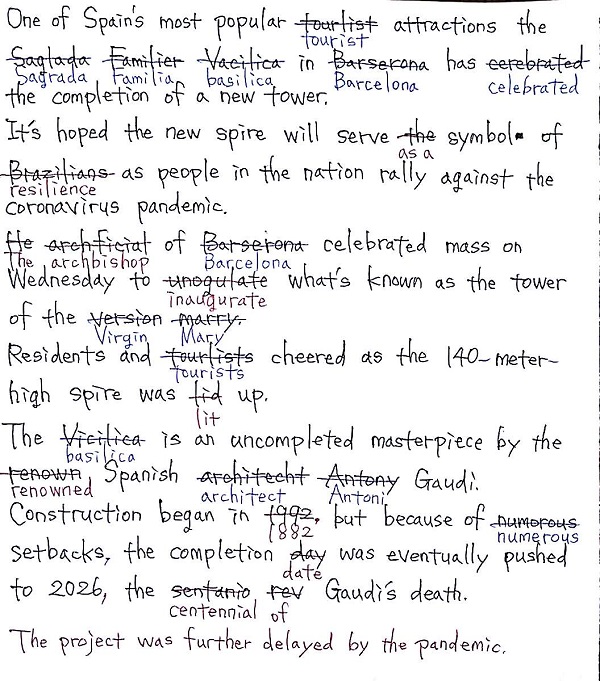 One of Spain's most popular tourlist attractions the
tourist
Saglada Familier Vacilica in Barserona has cerebrated
Sagrada Familia basilica Barcelona celebrated
the completion of a new tower.
It's hoped the new spire will serve the symbol of
as a
Brazilians as people in the nation rally against the
resilience
coronavirus pandemic.
He archficiat of Barserona celebrated mass on
The archbishop Barcelona
Wednesday to unogulate what's known as the tower
inaugurate
of the version marry.
Virgin Mary
Residents and tourlists cheered as the 140-meter-
tourists
high spire was lid up.
lit
The Vicilica is an uncompleted masterpiece by the
basilica
renown Spanish architecht Antony Gaudi.
renowned architect Antoni
Construction began in 1992, but because of numorous
1882 numerous
setbacks, the completion day was eventually pushed
date
to 2026, the sentanio rev Gaudi's death.
centennial of
The project was further delayed by the pandemic.